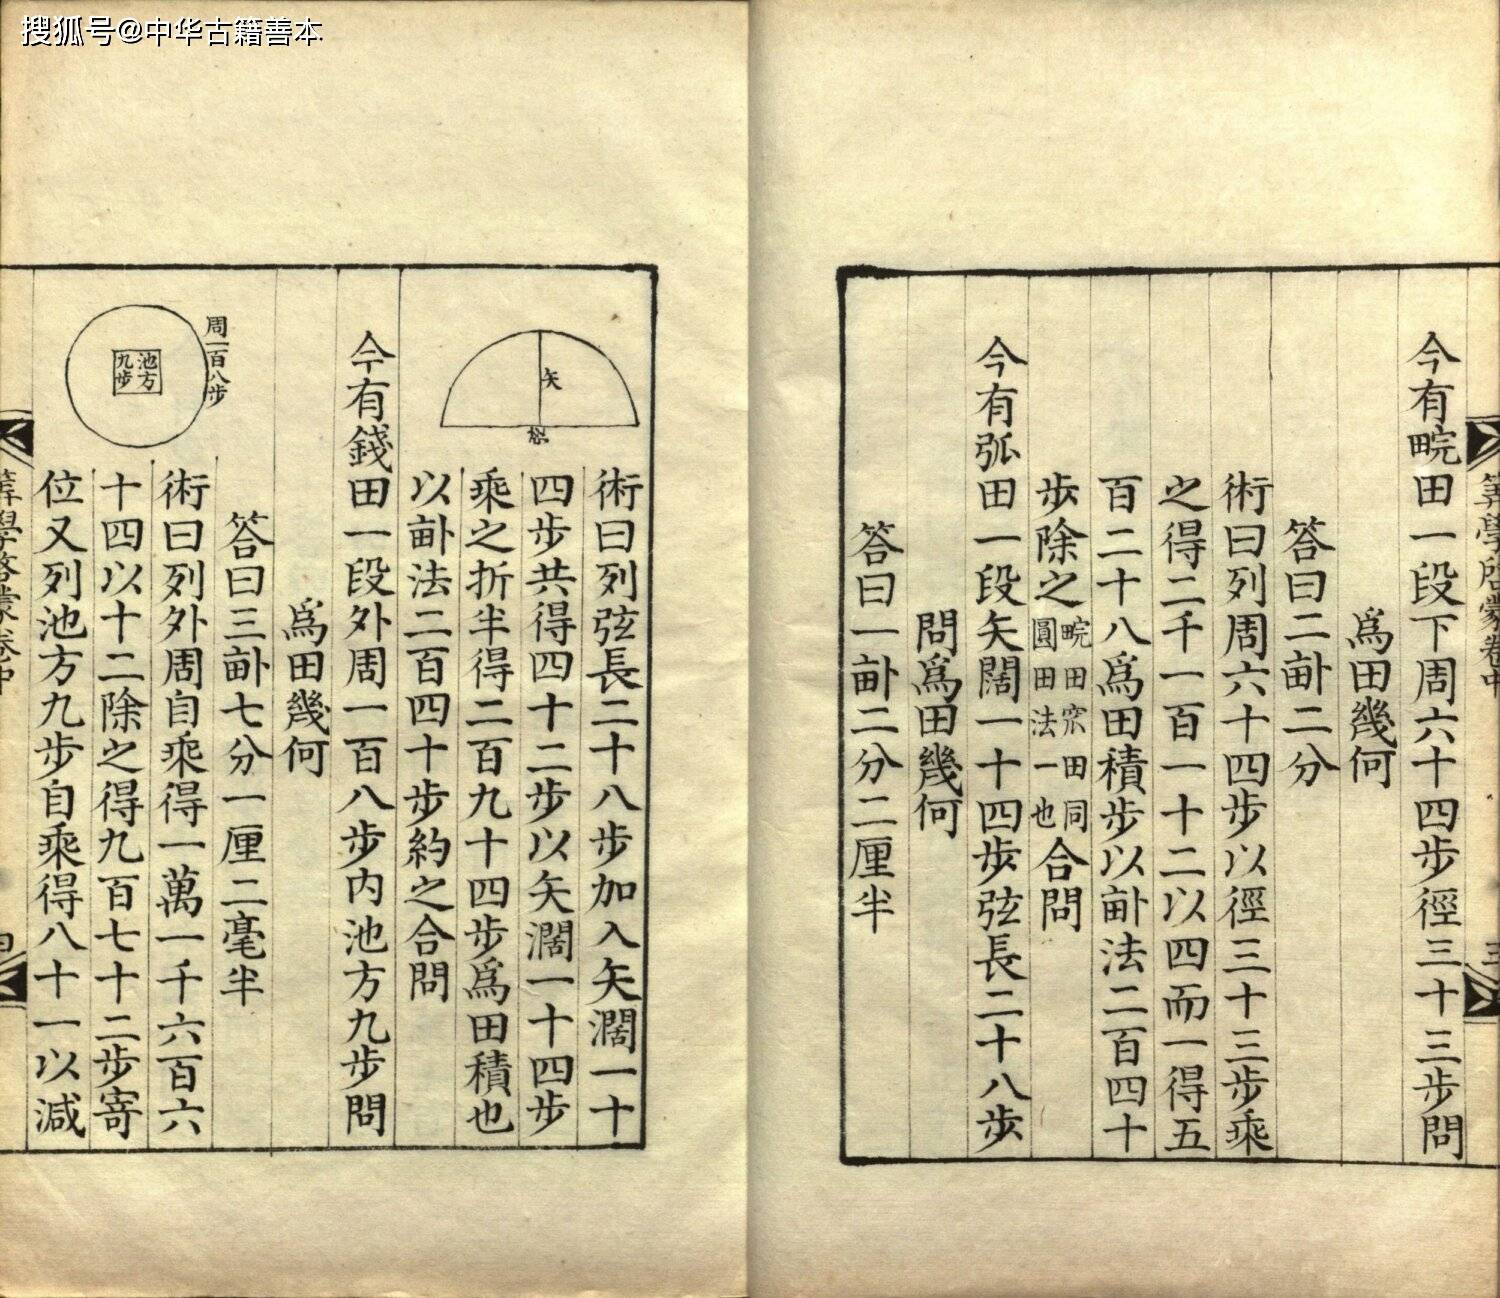 搜狐号@中华古籍善本
今有畹田一段下周六十四步徑三十三步問
爲田幾何
答曰二畝二分
術曰列周六十四步以徑三十三步乘
之得二千一百一十二以四而一得五
百二十八爲田積步以畝法二百四十
步除之畹田窊田同圓田法一也合問
今有弧田一段矢闊一十四步弦長二十八步
問爲田幾何
答曰一畝二分二厘半
矢
弦
術曰列弦長二十八步加入矢濶一十
四步共得四十二步以矢濶一十四步
乘之折半得二百九十四步爲田積也
以畝法二百四十步約之合問
今有錢田一段外周一百八步内池方九步問
爲田幾何
周一百八步
池方九步
答曰三畝七分一厘二毫半
術曰列外周自乘得一萬一千六百六
十四以十二除之得九百七十二步寄
位又列池方九步自乘得八十一以減
算學啓蒙卷中